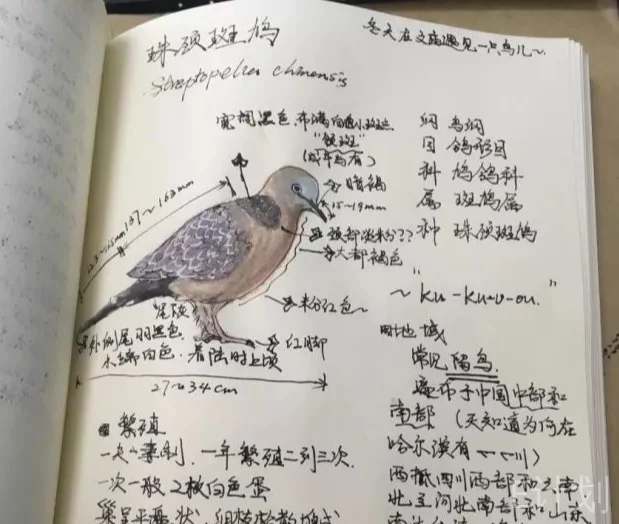 珠颈斑鸠
冬天在文庙遇见一只鸟儿~
Streptopelia chinensis
宽阔黑色,布满白色小斑点
"颈斑"
(成年鸟有)
暗褐
15~19mm
颈部淡粉??
大部褐色
粉红色
红脚
137~163mm
尾长
外侧尾羽黑色
末端白色.着陆时上顷
27~34cm
纲 鸟纲
目 鸽形目
科 鸠鸽科
属 斑鸠属
种 珠颈斑鸠
~"ku-ku-u-ou."
地域
常见留鸟.
遍布于中国中部和
南部(天知道为何在
哈尔滨有~~川)
西抵四川西部和云南
北至河北南部和山东
繁殖
一夫一妻制.一年繁殖二到三次.
一次一般2枚白色蛋
巢呈平盘状,细枝松散堆成